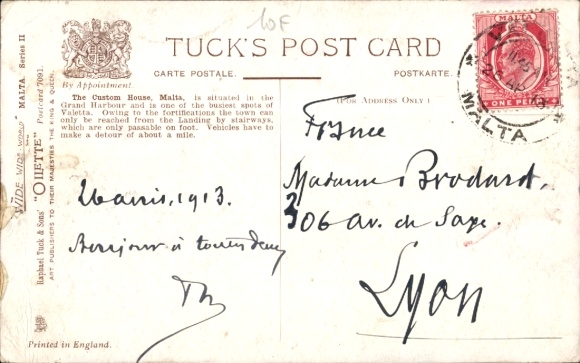 10F
TUCK'S POST CARD
CARTE POSTALE.
POSTKARTE.
By Appointment.
(FOR ADDRESS ONLY)
The Custom House, Malta, is situated in the
Grand Harbour and is one of the busiest spots of
Valetta. Owing to the fortifications the town can
only be reached from the Landing by stairways,
which are only passable on foot. Vehicles have to
make a detour of about a mile.
"WIDE WIDE WORLD" MALTA. Series II
Raphael Tuck & Sons' "OILETTE" Postcard 7091.
ART PUBLISHERS TO THEIR MAJESTIES THE KING & QUEEN.
MALTA
ONE PENNY
MALTA
1913.
Bonjour à toutes deux
France
Madame Brodard.
306 av. de Saxe.
Lyon
Printed in England.